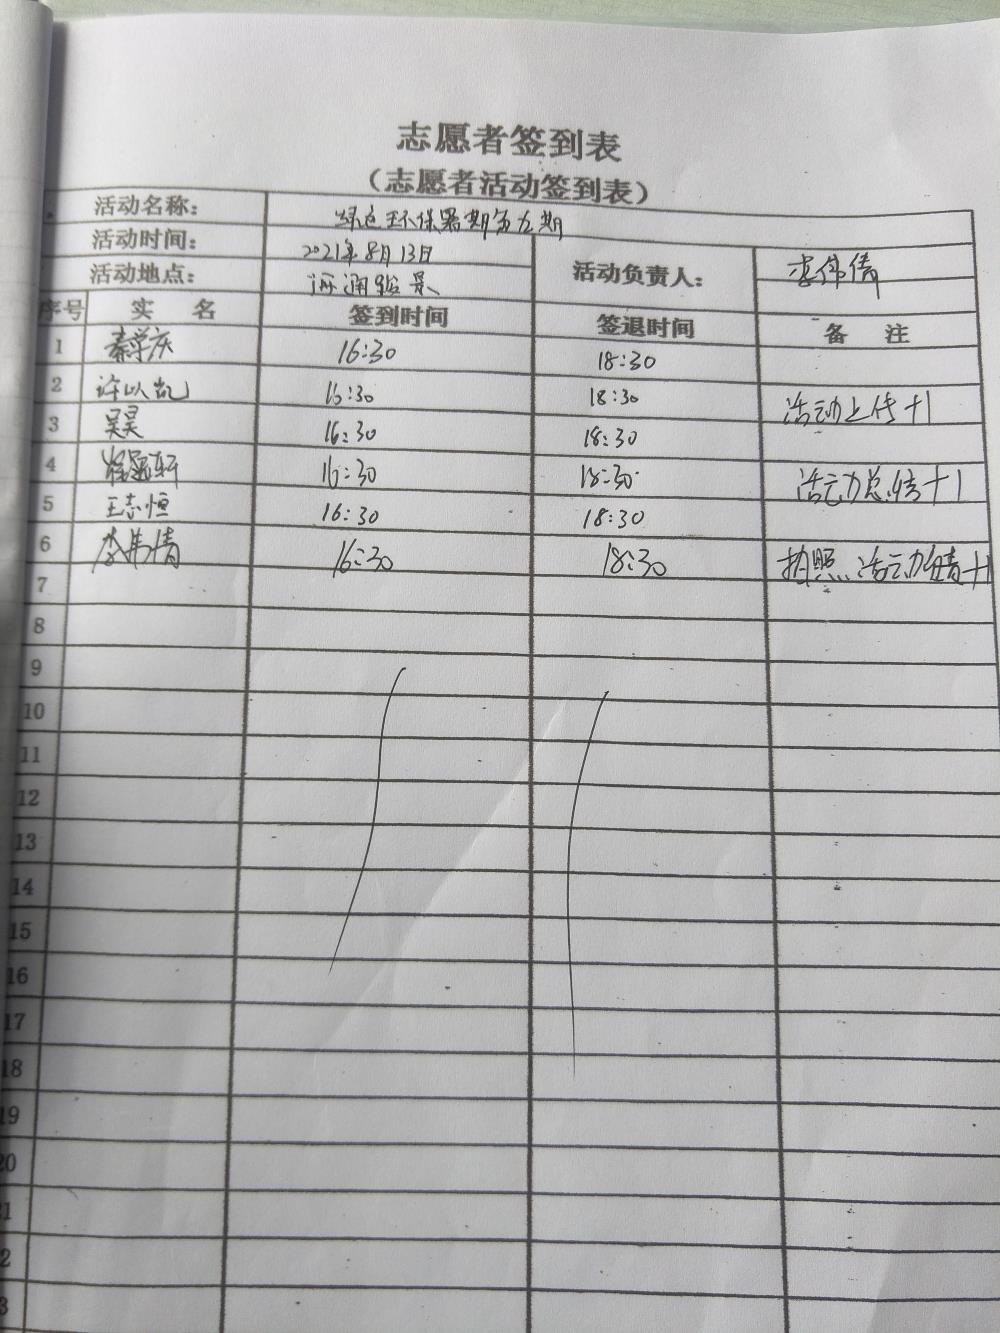 志愿者签到表
（志愿者活动签到表）
活动名称： 绿色环保暑期第九期
活动时间： 2021年8月13日 活动负责人： 李伟倩
活动地点： 景
序号 实 名 签到时间 签退时间 备 注
1 秦学庆 16:30 18:30
2 许以凯 16:30 18:30 活动上传+1
3 吴昊 16:30 18:30
4 轩 16:30 18:30 活动总结+1
5 王志恒 16:30 18:30
6 李伟倩 16:30 18:30 拍照 活动负责+1
7
8
9
10
11
12
13
14
15
16
17
18
19
20
1
2
3